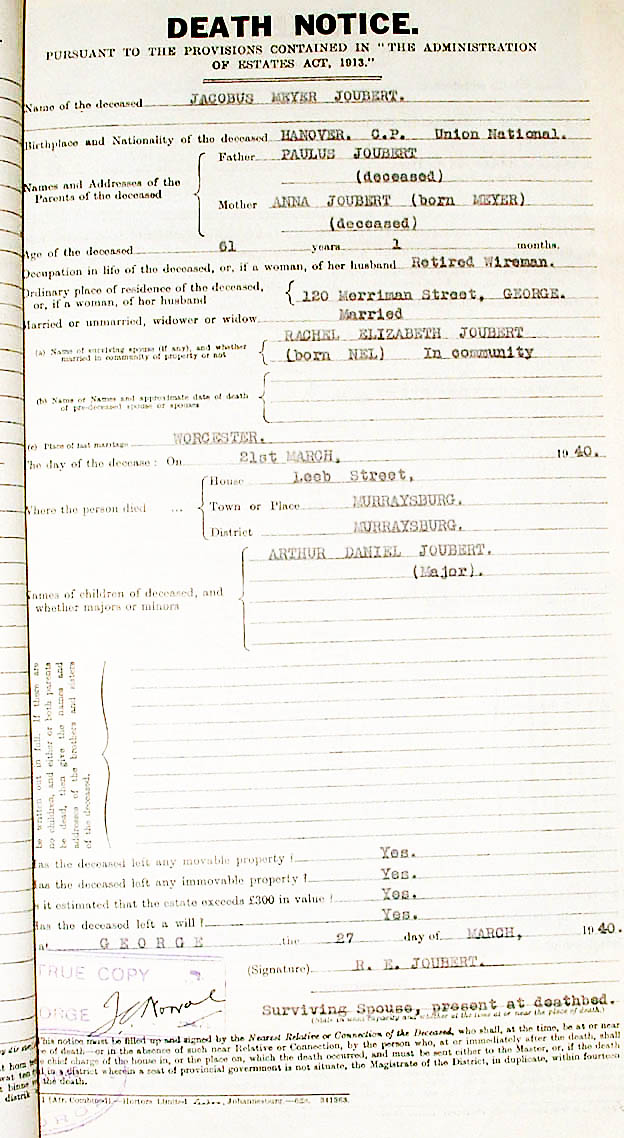 DEATH NOTICE.
PURSUANT TO THE PROVISIONS CONTAINED IN "THE ADMINISTRATION
OF ESTATES ACT, 1913."
Name of the deceased JACOBUS MEYER JOUBERT.
Birthplace and Nationality of the deceased HANOVER. C.P. Union National.
Names and Addresses of the Parents of the deceased
Father PAULUS JOUBERT
(deceased)
Mother ANNA JOUBERT (born MEYER)
(deceased)
Age of the deceased 61 years 1 months.
Occupation in life of the deceased, or, if a woman, of her husband Retired Wireman.
Ordinary place of residence of the deceased,
or, if a woman, of her husband 120 Merriman Street, GEORGE.
Married or unmarried, widower or widow Married
(a) Name of surviving spouse (if any), and whether RACHEL ELIZABETH JOUBERT
married in community of property or not (born NEL) In community
(b) Name or Names and approximate date of death
of pre-deceased spouse or spouses
(c) Place of last marriage WORCESTER.
The day of the decease: On 21st MARCH, 1940.
Where the person died ...
House Leeb Street,
Town or Place MURRAYSBURG.
District MURRAYSBURG.
Names of children of deceased, and
whether majors or minors
ARTHUR DANIEL JOUBERT.
(Major).
be written out in full. If there are
no children, and either or both parents
be dead, then give the names and
addresses of the brothers and sisters
of the deceased.
Has the deceased left any movable property? Yes.
Has the deceased left any immovable property? Yes.
Is it estimated that the estate exceeds £300 in value? Yes.
Has the deceased left a will? Yes.
at GEORGE the 27 day of MARCH, 1940.
TRUE COPY
(Signature) R. E. JOUBERT.
Surviving Spouse, present at deathbed.
This notice must be filled up and signed by the Nearest Relative or Connection of the Deceased, who shall, at the time, be at or near
of death—or in the absence of such near Relative or Connection, by the person who, at or immediately after the death, shall
chief charge of the house in, or the place on, which the death occurred, and must be sent either to the Master, or, if the death
in a district wherein a seat of provincial government is not situate, the Magistrate of the District, in duplicate, within fourteen
the death.
(Afr. Combined)—Hortors Limited Johannesburg